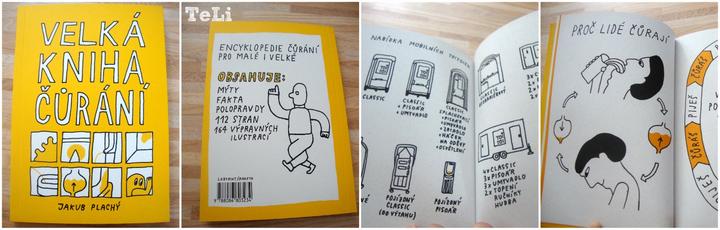 VELKÁ
KNIHA
ČŮRÁNÍ
JAKUB PLACHÝ
TeLi
ENCYKLOPEDIE ČŮRÁNÍ
PRO MALÉ I VELKÉ
OBSAHUJE:
MÝTY
FAKTA
POLOPRAVDY
112 STRAN
164 VÝPRAVNÝCH
ILUSTRACÍ
LABYRINT/RAKETA
9 788086 803234
NABÍDKA MOBILNÍCH
CLASSIC
CLASSIC
+ PISOÁR
+ UMYVADLO
CLASSIC
SPLACHOVACÍ
+ PISOÁR
+ UMYVADLO
+ ZRCADLO
+ HÁČEK
NA ODĚVY
+ OSVĚTLENÍ
4x CLASSIC
3x PISOÁR
3x UMYVADLO
2x TOPENÍ
RUČNÍKY
HUDBA
POJÍZDNÝ
CLASSIC
(DO VÝTAHU)
POJÍZDNÝ
PISOÁR
PROČ LIDÉ ČŮRAJÍ
ČŮRÁŠ
PIJEŠ
ČŮRÁŠ